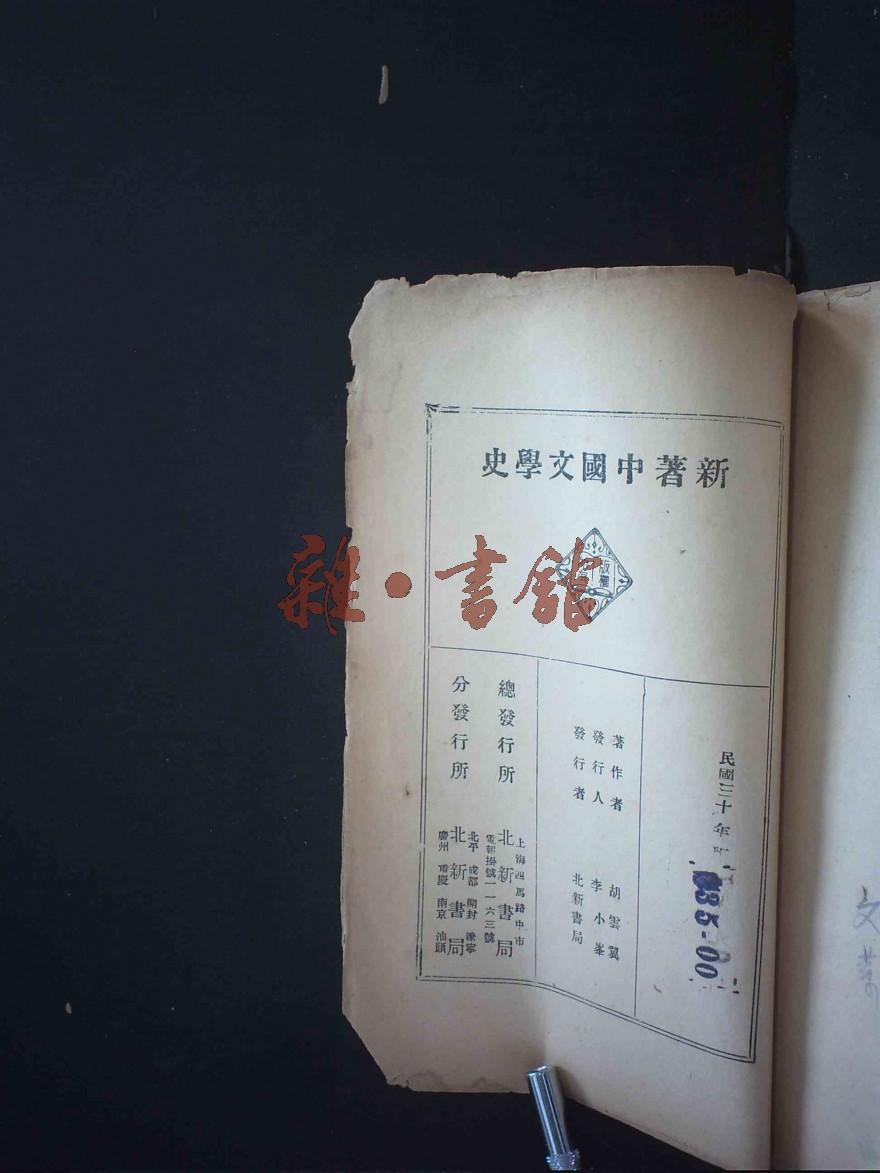 新著中國文學史
版權
雜·書館
民國三十年
135-00
著作者 胡雲翼
發行人 李小峯
發行者 北新書局
總發行所
上海四馬路中市
北新書局
電報掛號一一六三號
分發行所
北平 成都 開封 遼寧
北新書局
廣州 重慶 南京 汕頭
文